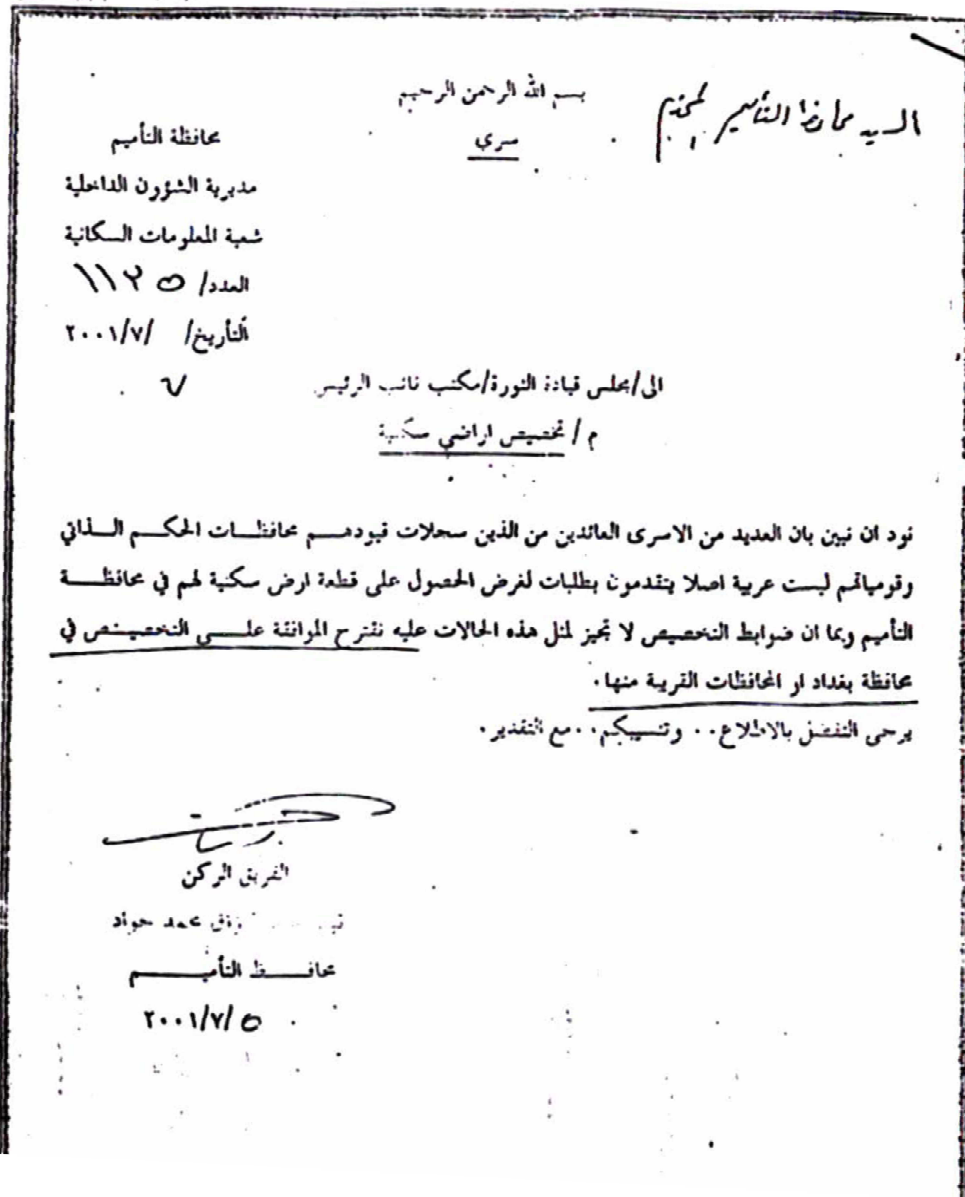 السيد محافظ التأميم المحترم
بسم الله الرحمن الرحيم
سري
محافظة التأميم
مديرية الشؤون الداخلية
شعبة المعلومات السكانية
العدد/ ١١٢٥
التأريخ/ /٢٠٠١/٧
٧
الى/مجلس قيادة الثورة/مكتب نائب الرئيس
م/ تخصيص اراضي سكنية
نود ان نبين بان العديد من الاسرى العائدين من الذين سجلات قيودهم محافظات الحكم الذاتي
وقومياتهم ليست عربية اصلا يتقدمون بطلبات لغرض الحصول على قطعة ارض سكنية لهم في محافظة
التأميم وبما ان ضوابط التخصيص لا تجيز لمثل هذه الحالات عليه نقترح الموافقة على التخصيص في
محافظة بغداد او المحافظات القريبة منها.
يرجى التفضل بالاطلاع.. وتنسيبكم..مع التقدير.
الفريق الركن
محمد جواد
محافظ التأميم
٢٠٠١/٧/٥